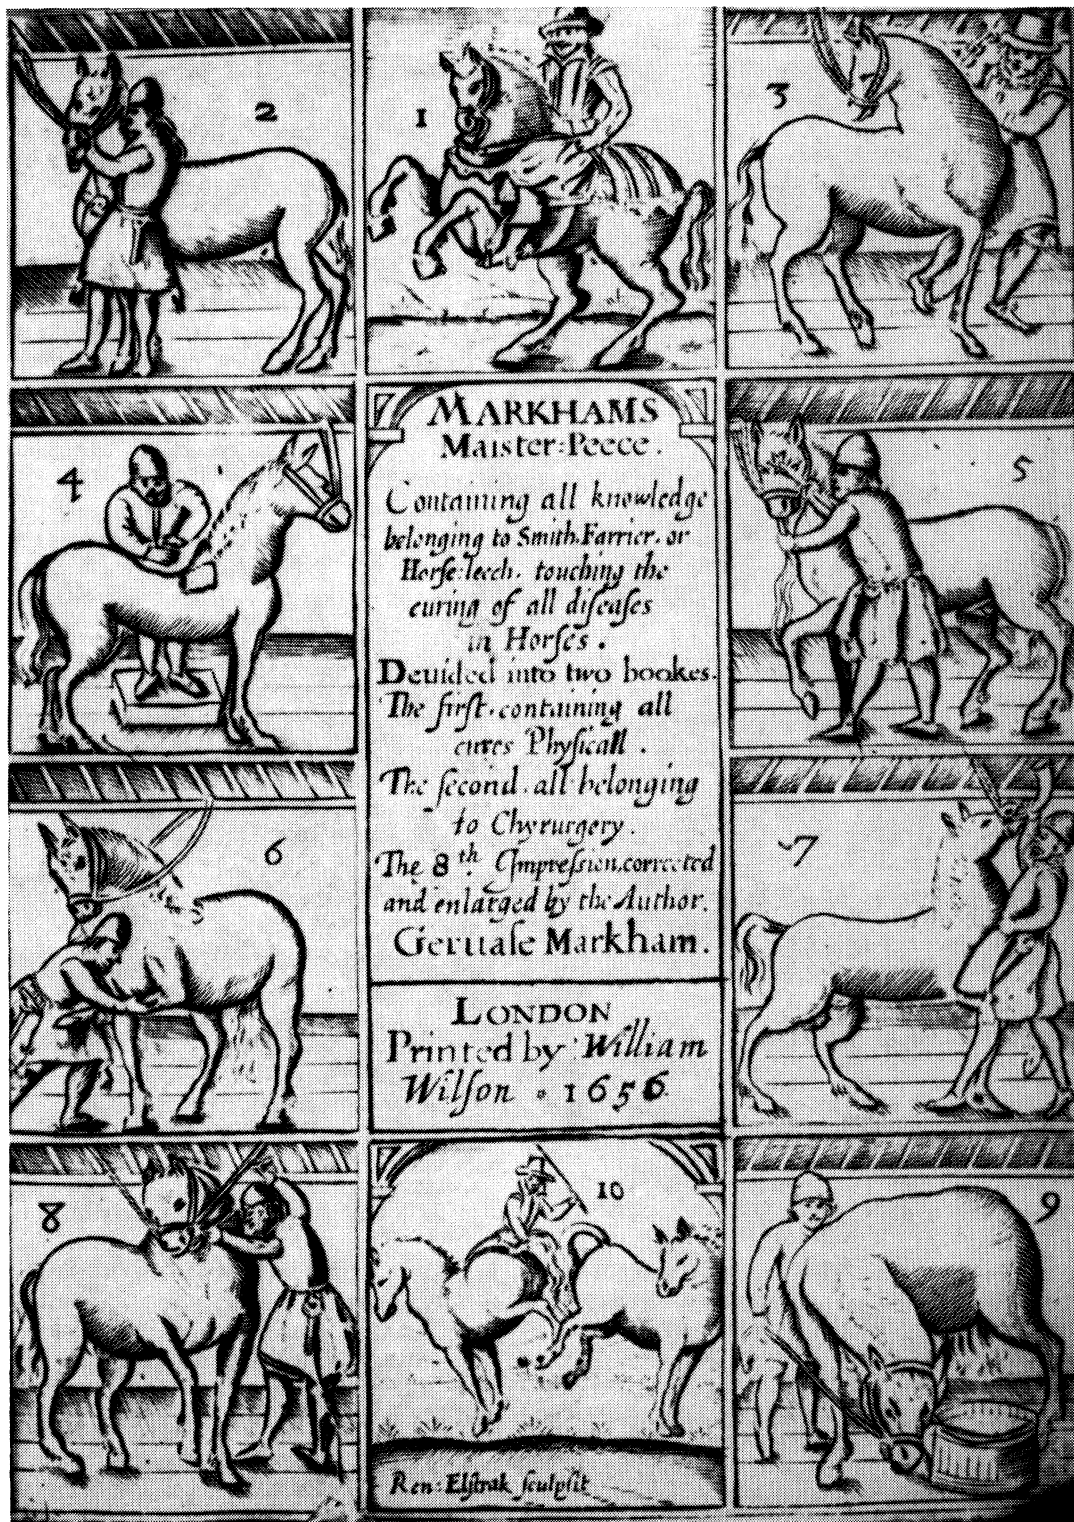 2
1
3
MARKHAMS
Maister=Peece.
Containing all knowledge
belonging to Smith, Farrier, or
Horſe=leech, touching the
curing of all diſeaſes
in Horſes.
Deuided into two bookes.
The firſt, containing all
cures Phyſicall.
The ſecond, all belonging
to Chyrurgery.
The 8th Impreſsion, corrected
and enlarged by the Author.
Geruaſe Markham.
4
5
6
7
LONDON
Printed by William
Wilſon. 1656.
8
10
9
Ren: Elſtrak ſculpſit